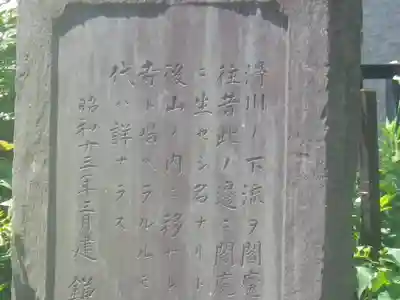 滑川ノ下流ヲ閻魔
往昔此ノ邊ニ閻魔
ニ坐セシ名ナリト
後山ノ内ニ移サレ
寺ト唱ヘラルルモ
代ハ詳ナラス
昭和十三年三月建 鎌